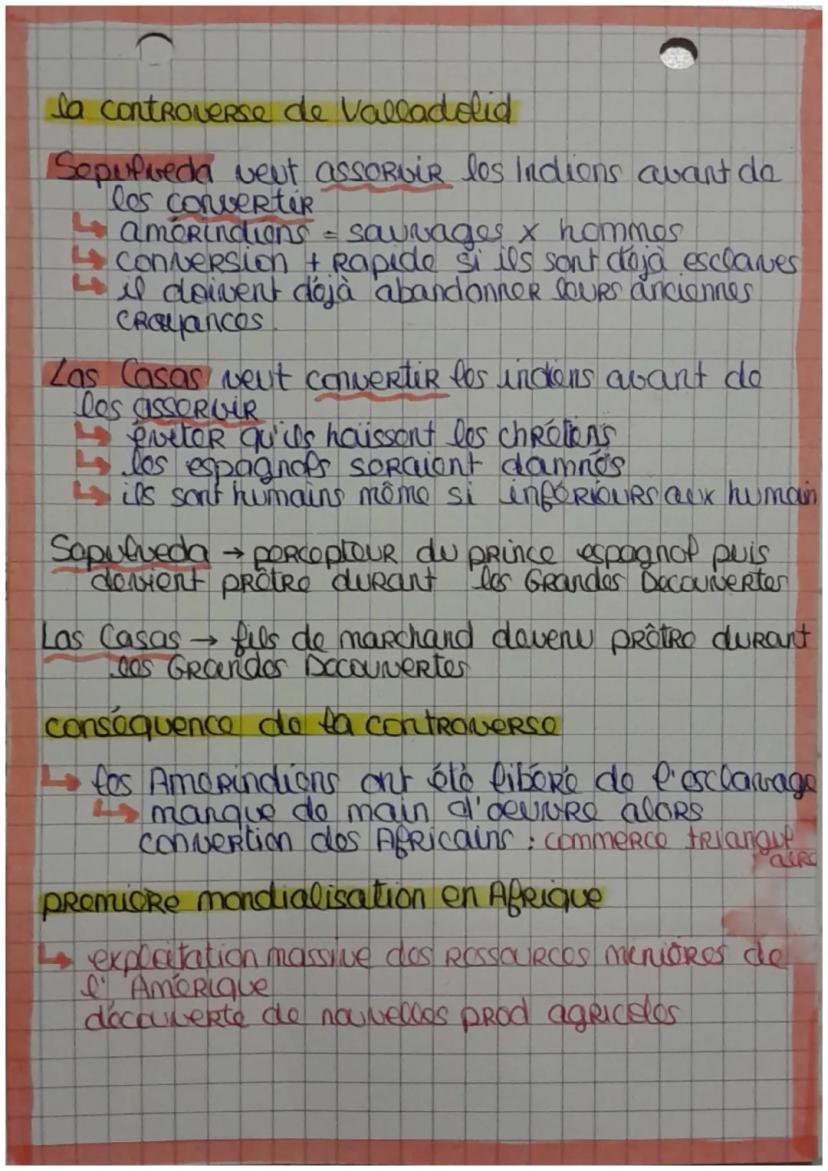 la controverse de Valladolid
Sepulveda veut assorvir les Indiens avant de
les convertir
↳ amérindiens = sauvages x hommes
↳ conversion + rapide si ils sont déjà esclaves
↳ il doivent déjà abandonner leurs anciennes
croyances.
Las Casas veut convertir les indiens avant de
les assorvir
↳ éviter qu'ils haïssent les chrétiens
↳ les espagnols seraient damnés
↳ ils sont humains même si inférieurs aux humain
Sepulveda → percepteur du prince espagnol puis
devient prêtre durant les Grandes Decouvertes
Las Casas → fils de marchand devenu prêtre durant
les Grandes Decouvertes
conséquence de la controverse
↳ les Amerindiens ont été libéré de l'esclavage
↳ manque de main d'oeuvre alors
convertion des Africains : commerce triangul
aire
première mondialisation en Afrique
↳ exploitation massive des ressources menières de
l'Amérique
découverte de nouvelles prod agricoles